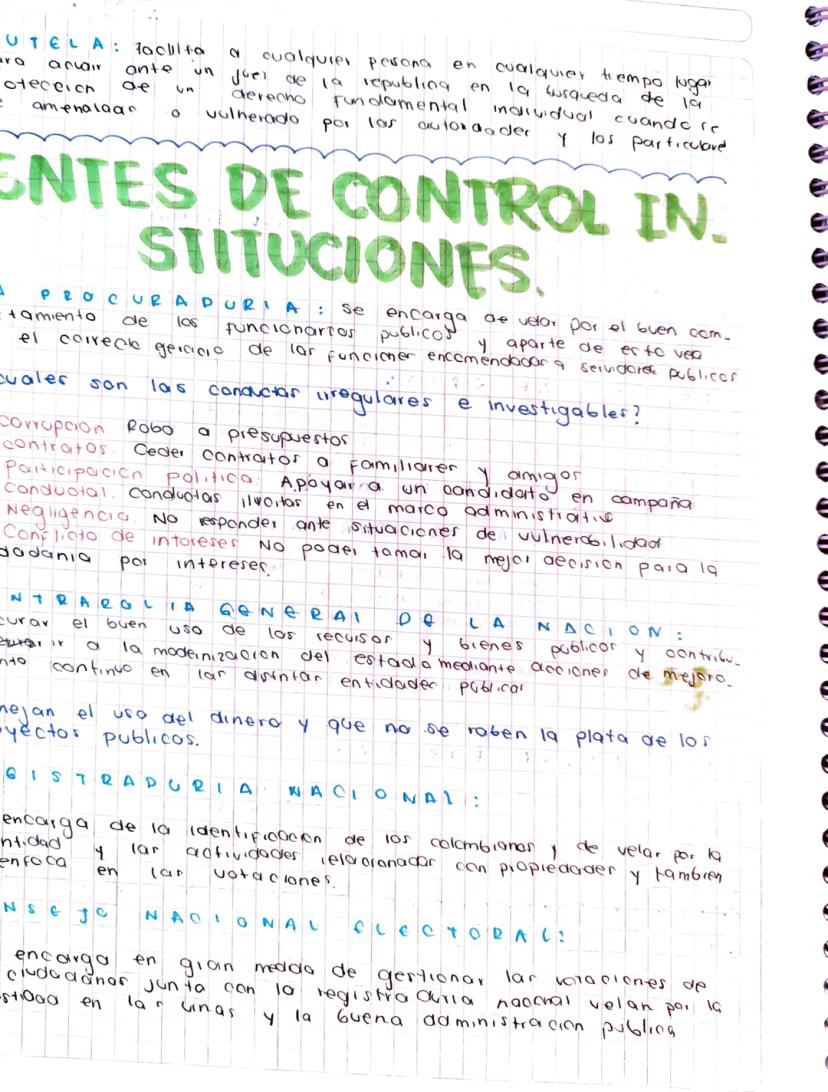 UTELA: Facilita a cualquier persona en cualquier tiempo lugar
ara acudir ante un juez de la republica en la busqueda de la
otección de un derecho fundamental individual cuando se
e amenazado o vulnerado por las autoridades y los particulare
ENTES DE CONTROL IN.
STITUCIONES.
A PROCURADURIA: se encarga de velar por el buen com-
tamiento de los funcionarios publicos y aparte de esto vea
el correcto gercicio de las funciones encomendadas a servidores publicos
cuales son las conductas irregulares e investigables?
corrupcion Robo a presupuestos
contratos. Ceder contratos a familiares y amigos
Participacion politica: Apoyar a un candidato en campaña
Conductal. conductas ilicitas en el marco administrativo
Negligencia No responder ante situaciones de vulnerabilidad
Conflicto de intereses No poder tomar la mejor decision para la
dadania por intereses.
NTRAROLIA GENERAL DE LA NACION:
curar el buen uso de los recursos y bienes publicos y contribu-
ir a la modernizacion del estado mediante acciones de mejora-
nto continuo en las distintas entidades publicas
nejan el uso del dinero y que no se roben la plata de los
oyectos publicos.
GISTRADURIA NACIONAL:
encarga de la identificacion de los colombianos y de velar por la
ntidad y las actividades relacionadas con propiedades y tambien
enfoca en las votaciones.
NSEJO NACIONAL ELECTORAL:
encarga en gran medida de gestionar las votaciones de
ciudadanos junto con la registraduria nacional velan por la
estidad en las urnas y la buena administracion publica